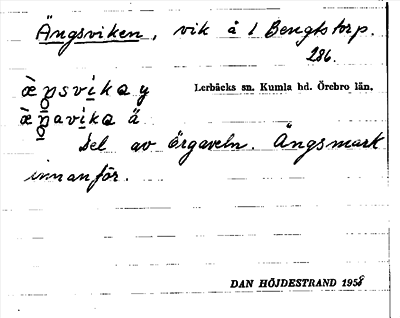 Ängsviken, vik å 1 Bengtstorp.
286.
Lerbäcks sn. Kumla hd. Örebro län.
Del av Örgaveln. Ängsmark
innanför.
DAN HÖJDESTRAND 1958